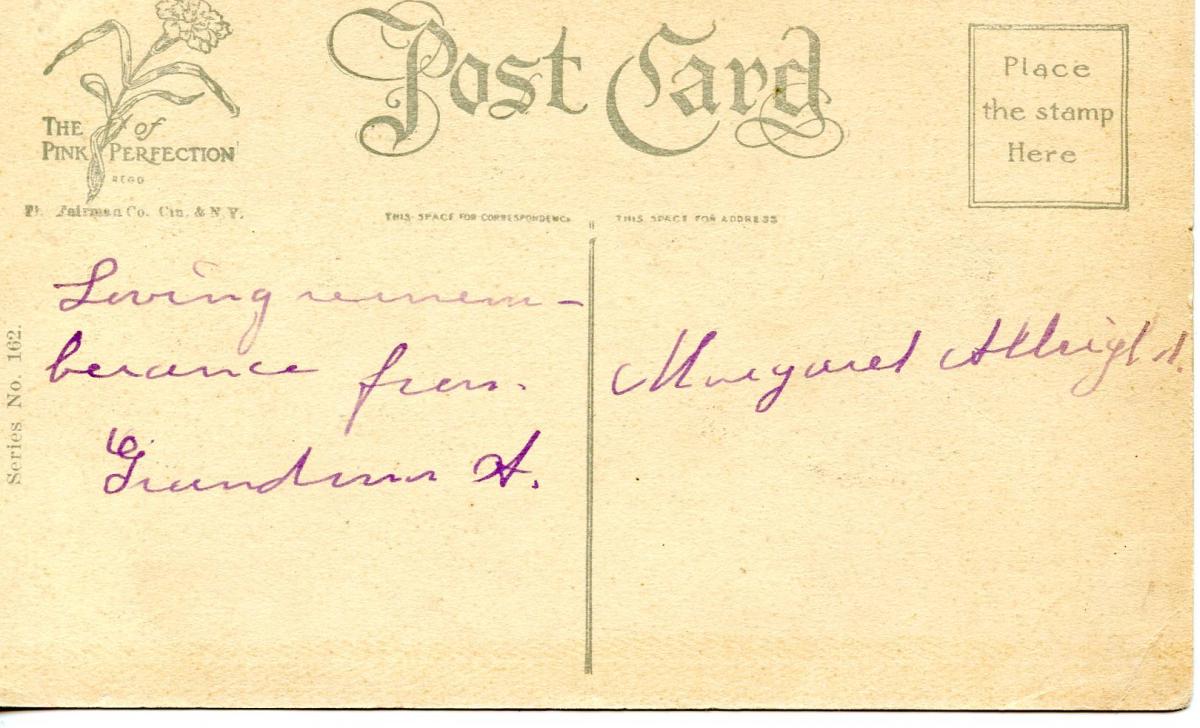 Post Card
THE of
PINK PERFECTION
REGD
The Fairman Co. Cin. & N.Y.
Place
the stamp
Here
THIS SPACE FOR CORRESPONDENCE
THIS SPACE FOR ADDRESS
Series No. 162.
Loving remem-
berance from
Grandma A.
Margaret Allright.